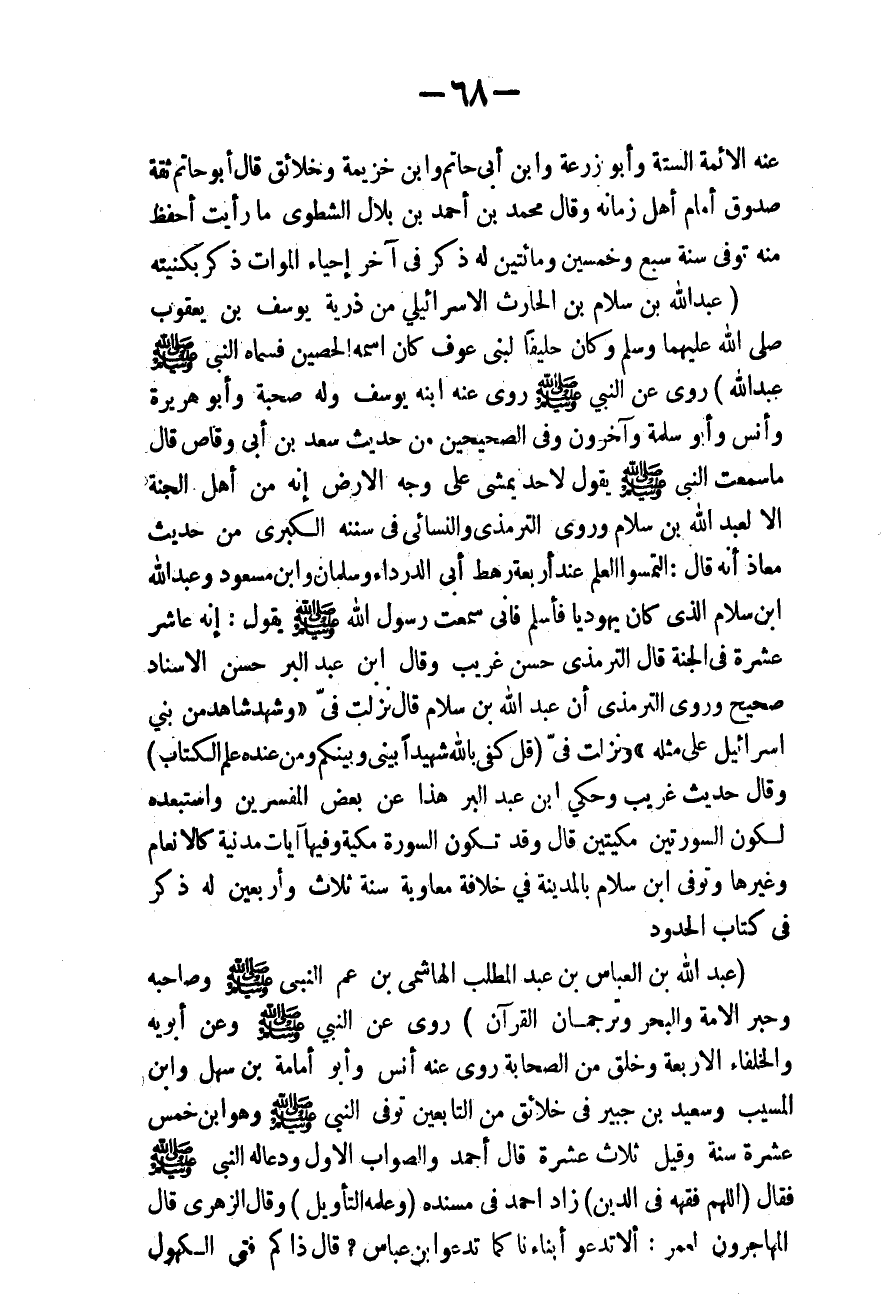 — ٦٨ —
عنه الائمة الستة وأبو زرعة وابن أبى حاتم وابن خزيمة وخلائق قال أبو حاتم ثقة
صدوق أمام أهل زمانه وقال محمد بن أحمد بن بلال الشطوى ما رأيت أحفظ
منه توفى سنة سبع وخمسين ومائتين له ذكر فى آخر إحياء الموات ذكر بكنيته
( عبدالله بن سلام بن الحارث الاسرائيلي من ذرية يوسف بن يعقوب
صلى الله عليهما وسلم وكان حليفاً لبنى عوف كان اسمه الحصين فسماه النبى ﷺ
عبدالله ) روى عن النبي ﷺ روى عنه ابنه يوسف وله صحبة وأبو هريرة
وأنس وأبو سلمة وآخرون وفى الصحيحين من حديث سعد بن أبى وقاص قال
ماسمعت النبى ﷺ يقول لاحد يمشى على وجه الارض إنه من أهل الجنة
الا لعبد الله بن سلام وروى الترمذى والنسائى فى سننه الكبرى من حديث
معاذ أنه قال : التمسوا العلم عند أربعة رهط أبي الدرداء وسلمان وابن مسعود وعبدالله
ابن سلام الذى كان يهوديا فأسلم فانى سمعت رسول الله ﷺ يقول : إنه عاشر
عشرة فى الجنة قال الترمذى حسن غريب وقال ابن عبد البر حسن الاسناد
صحيح وروى الترمذى أن عبد الله بن سلام قال نزلت فىّ «وشهد شاهد من بني
اسرائيل على مثله » ونزلت فىّ (قل كفى بالله شهيداً بينى وبينكم ومن عنده علم الكتاب)
وقال حديث غريب وحكي ابن عبد البر هذا عن بعض المفسرين واستبعده
لكون السورتين مكيتين قال وقد تكون السورة مكية وفيها آيات مدنية كالانعام
وغيرها وتوفى ابن سلام بالمدينة في خلافة معاوية سنة ثلاث وأربعين له ذكر
فى كتاب الحدود
(عبد الله بن العباس بن عبد المطلب الهاشمى بن عم النبى ﷺ وصاحبه
وحبر الامة والبحر وترجمان القرآن ) روى عن النبي ﷺ وعن أبويه
والخلفاء الاربعة وخلق من الصحابة روى عنه أنس وأبو أمامة بن سهل وابن
المسيب وسعيد بن جبير فى خلائق من التابعين توفى النبي ﷺ وهو ابن خمس
عشرة سنة وقيل ثلاث عشرة قال أحمد والصواب الاول ودعا له النبي ﷺ
فقال (اللهم فقهه فى الدين) زاد احمد فى مسنده (وعلمه التأويل ) وقال الزهرى قال
المهاجرون لعمر : ألا تدعو أبناءنا كما تدعو ابن عباس ? قال ذاكم فتى الكهول